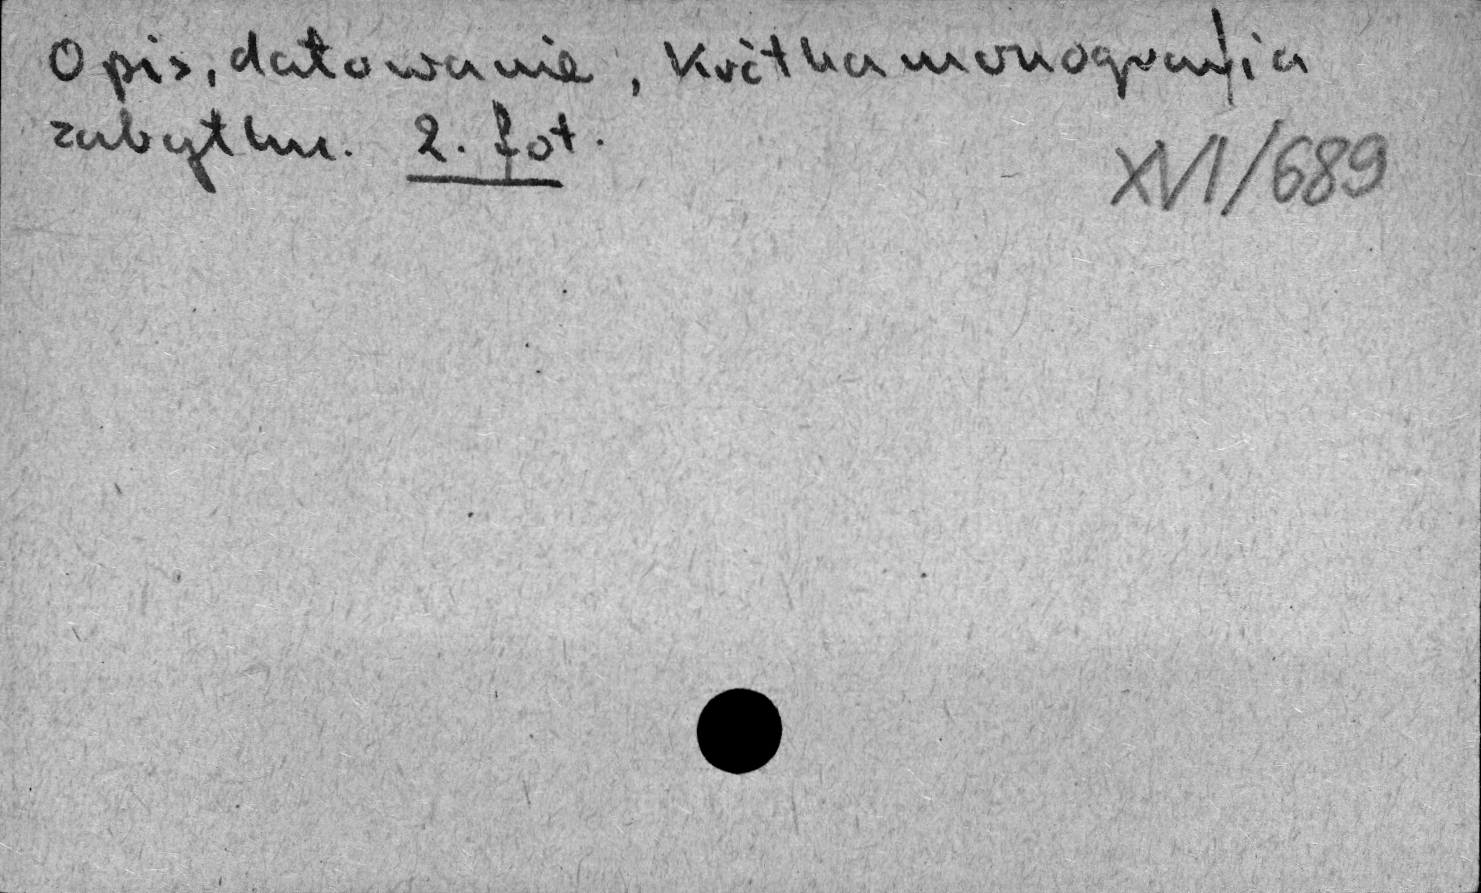 Opis, datowanie, krótka monografia
zabytku. 2. fot.
XVI/689